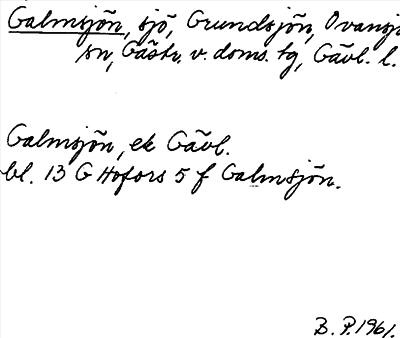 Galmsjön, sjö, Grundsjön, Ovansj
sn, Gästr. v. doms. tg, Gävl. l.
Galmsjön, ek Gävl.
bl. 13 G Hofors 5 f Galmsjön.
B. P. 1961.